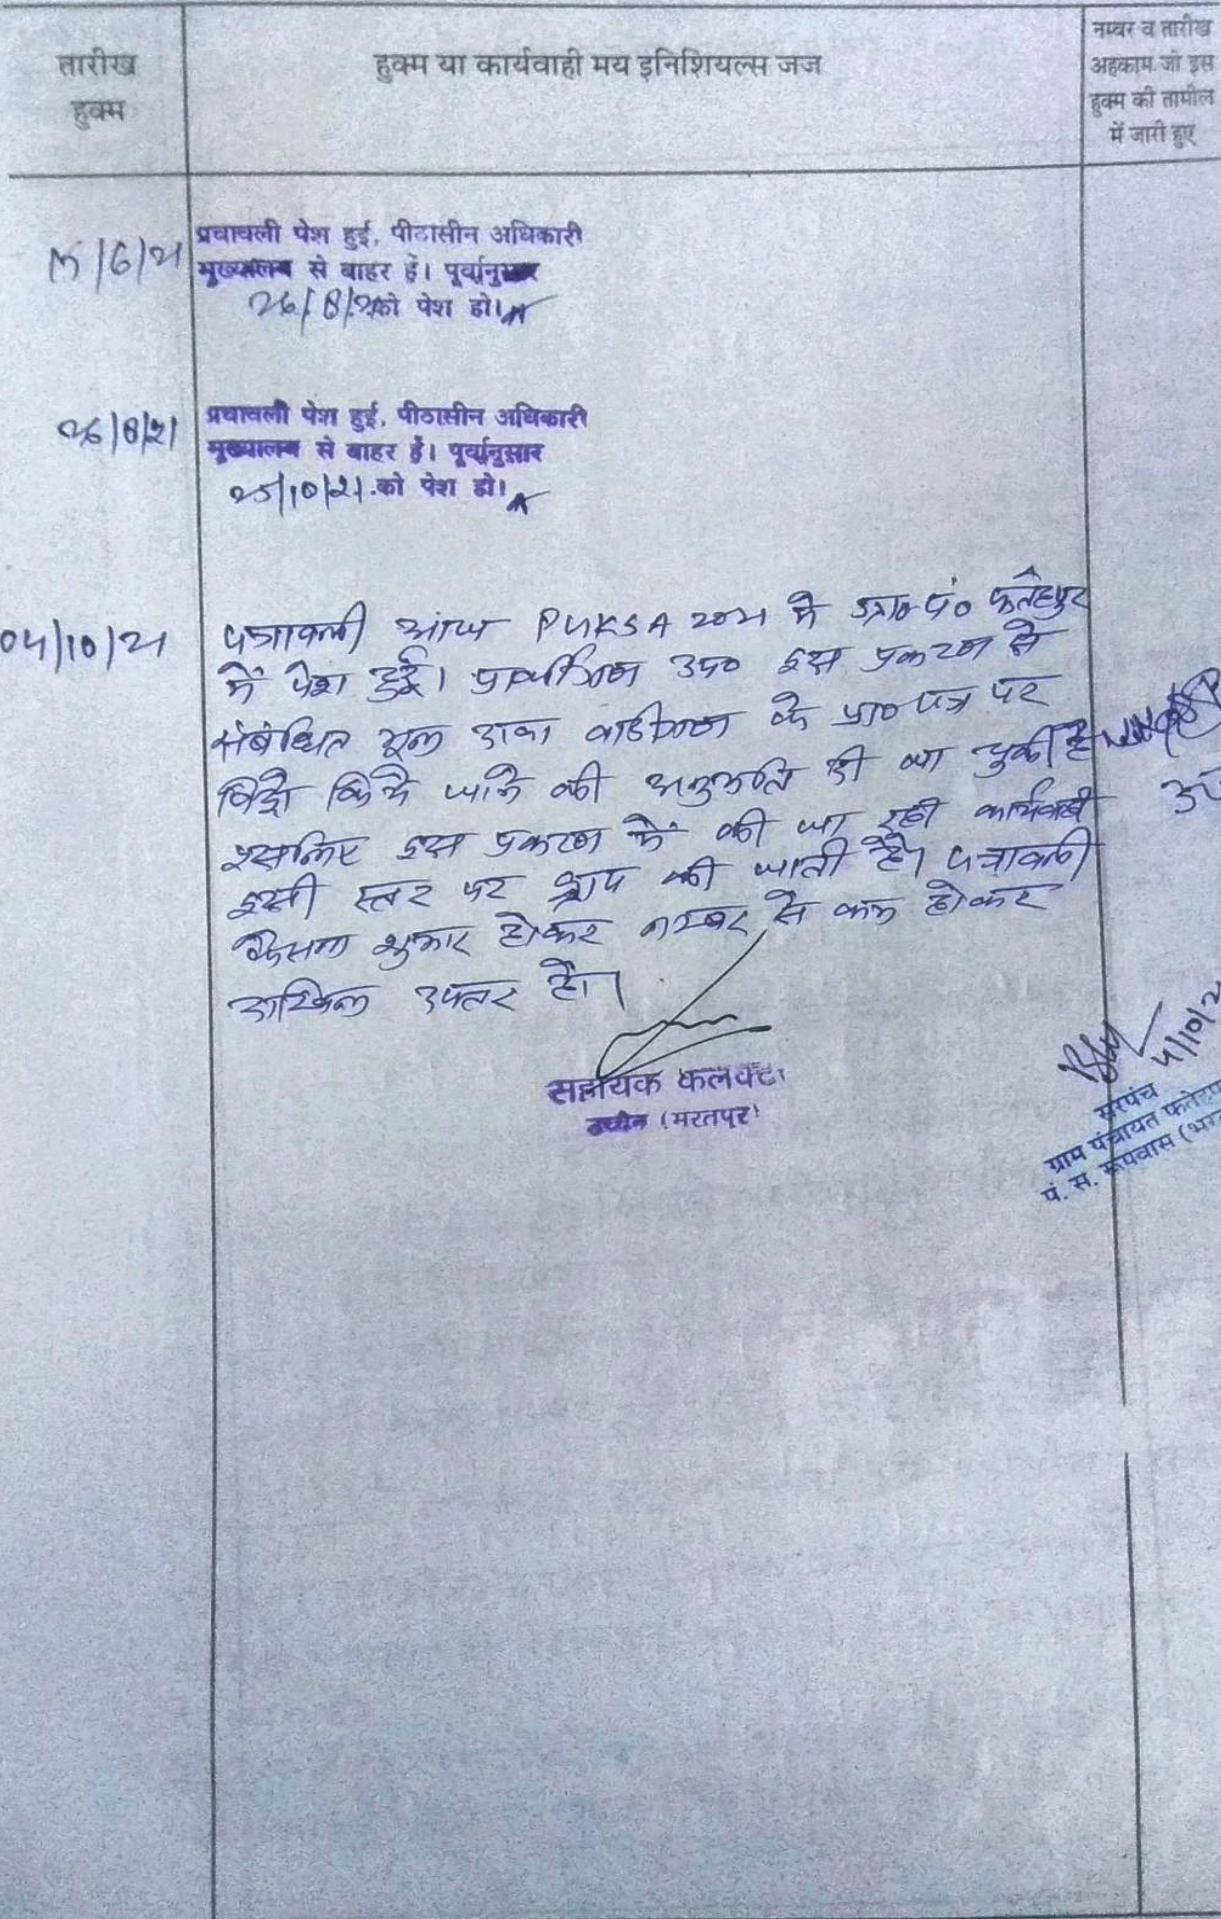 तारीख
हुक्म
हुक्म या कार्यवाही मय इनिशियल्स जज
नम्बर व तारीख
अहकाम जो इस
हुक्म की तामील
में जारी हुए
/6/21
प्रचावली पेश हुई, पीठासीन अधिकारी
मुख्यालय से बाहर हैं। पूर्वानुसार
26/8/21 को पेश हो।
26/8/21
प्रचावली पेश हुई, पीठासीन अधिकारी
मुख्यालय से बाहर हैं। पूर्वानुसार
25/10/21 को पेश हो।
04/10/21
पत्रावली आज PUKSA 2021 में ग्रा० पं० फतेहपुर
में पेश हुई। प्रार्थीगण उप० इस प्रकरण से
संबंधित मूल दावा वादीगण के प्रा० पत्र पर
विड्रो किये जाने की अनुमति दी जा चुकी है
इसलिए इस प्रकरण में की जा रही कार्यवाही
इसी स्तर पर ड्राप की जाती है। पत्रावली
फैसल शुमार होकर नम्बर से कम होकर
दाखिल दफ्तर हो।
सहायक कलक्टर
(भरतपुर)
4/10/21
सरपंच
ग्राम पंचायत फतेहपुर
पं. स. रूपवास